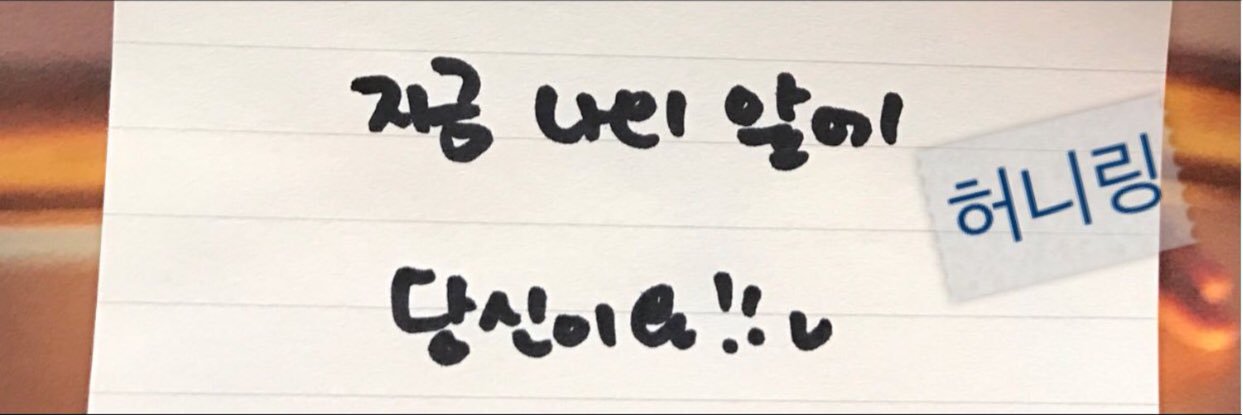 지금 나의 앞에
허니링
당신이요!!